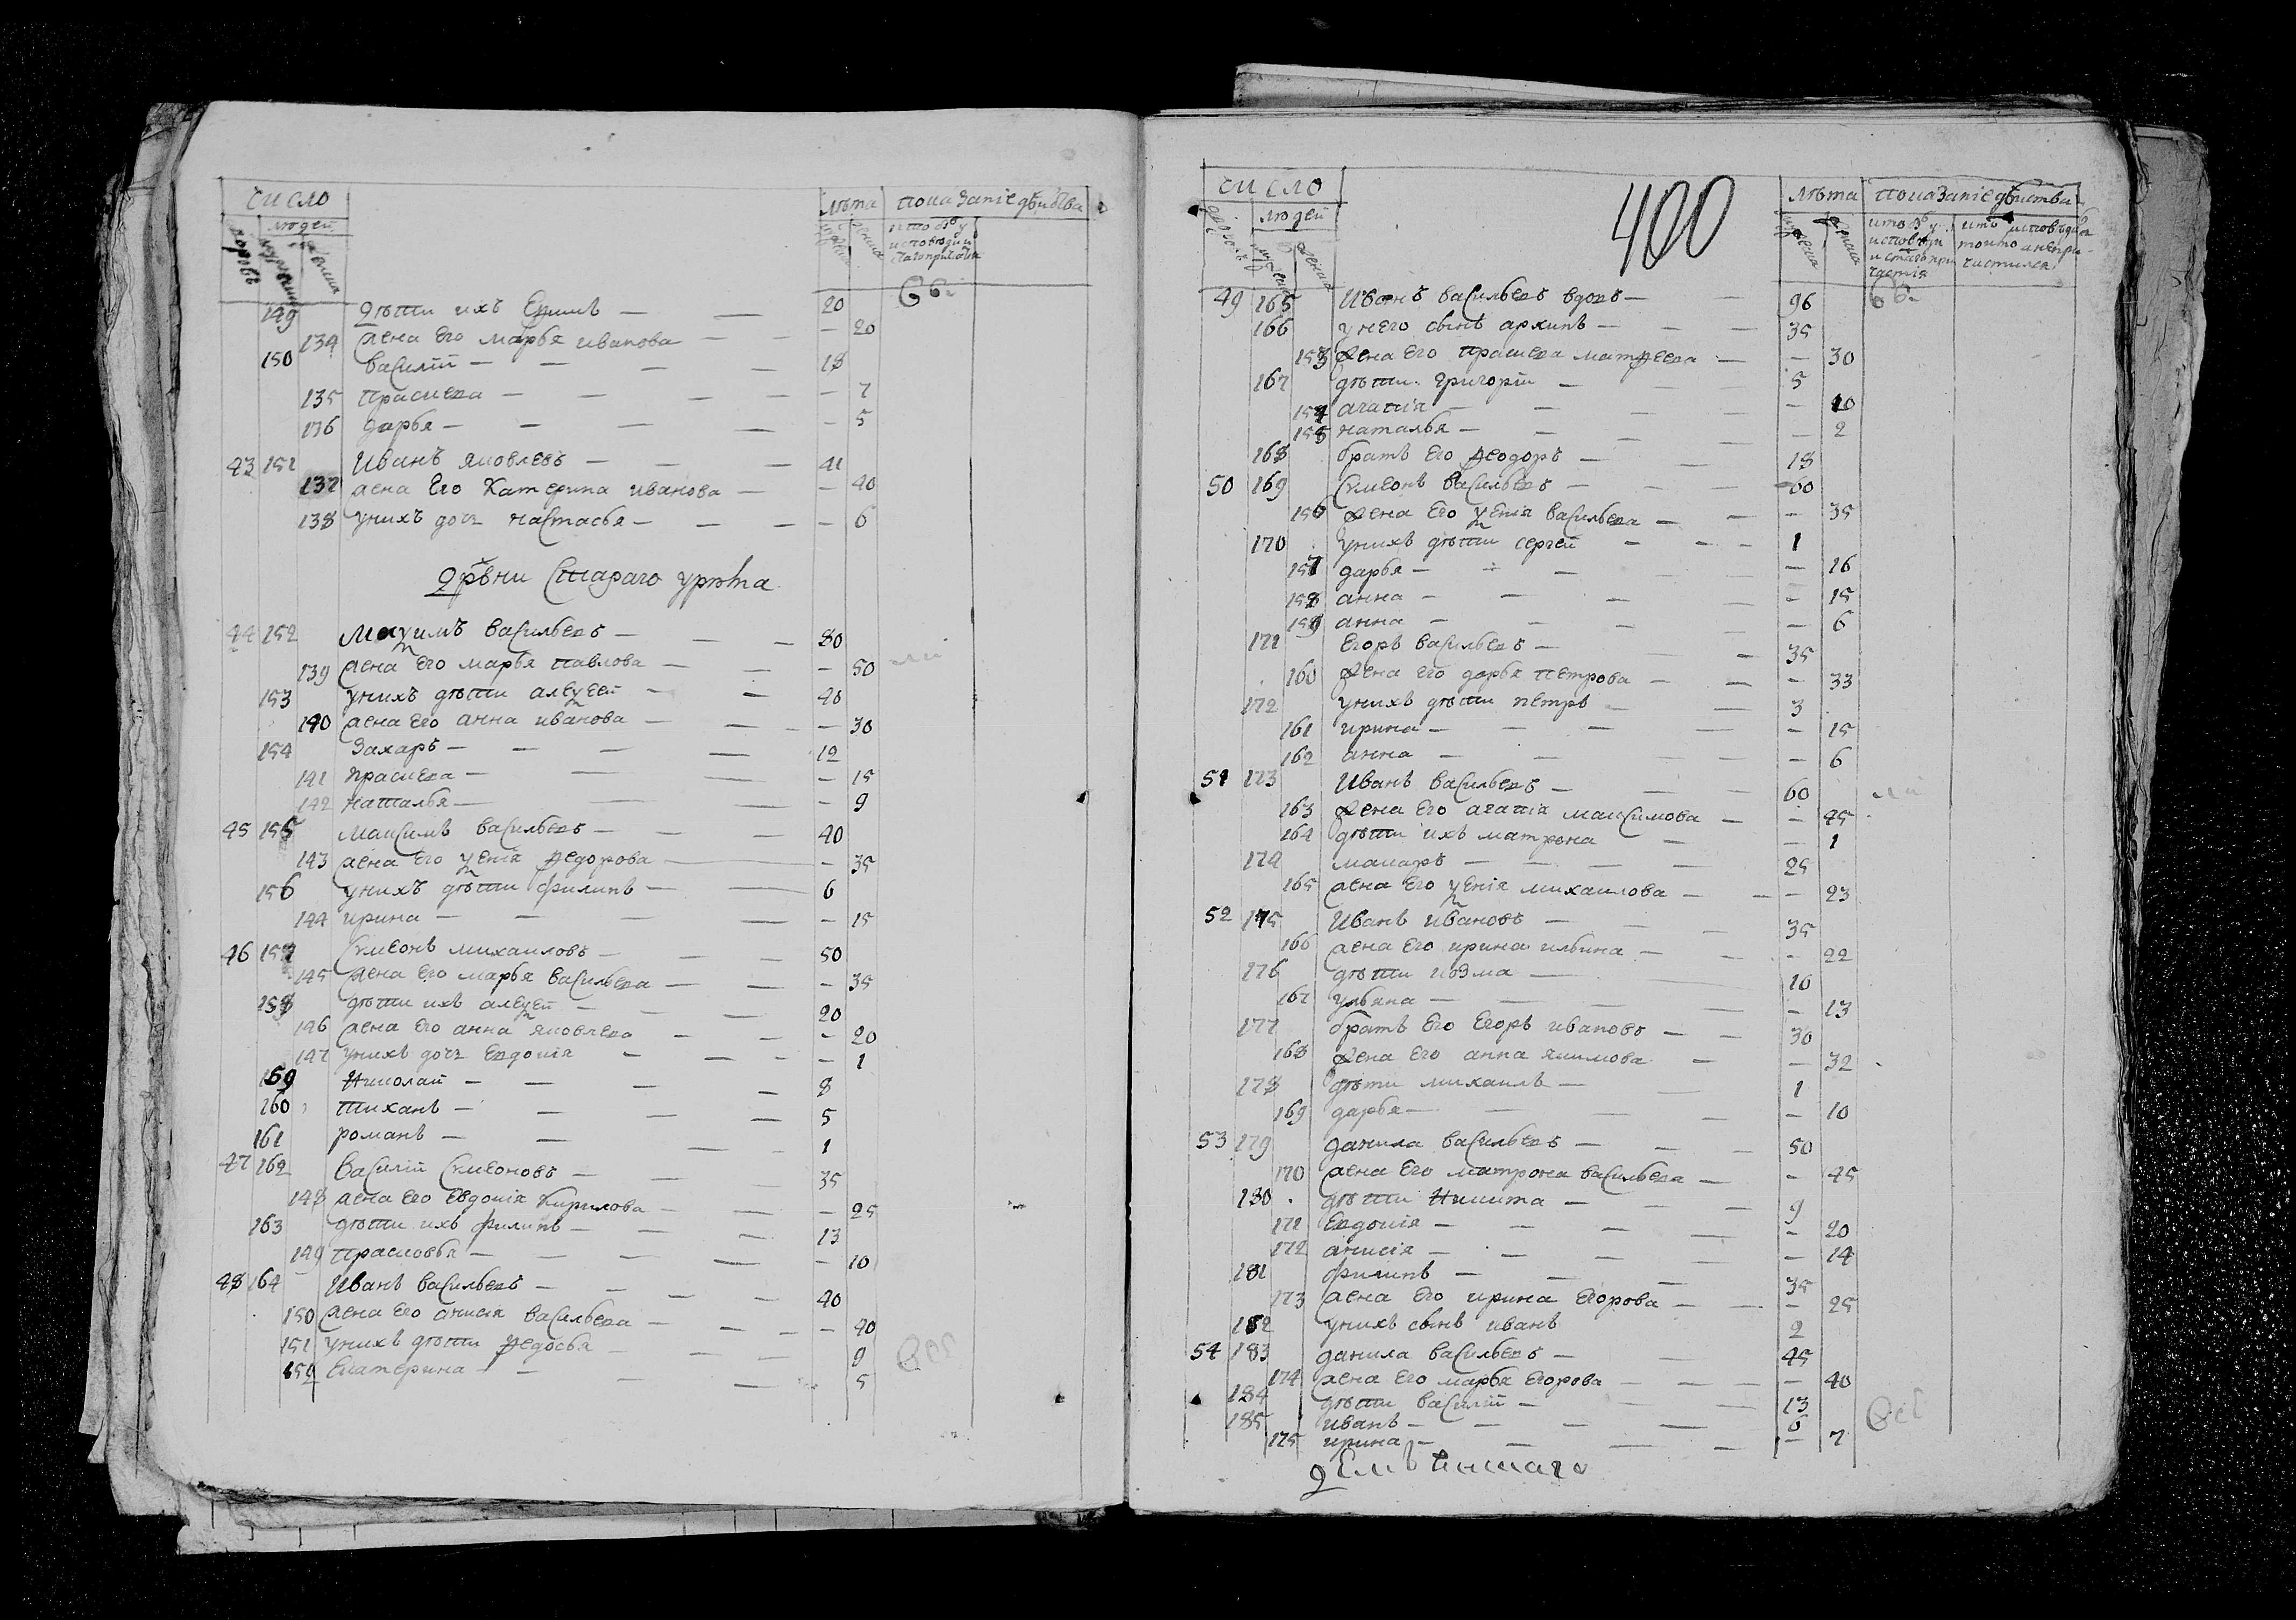 число
лѣта показаніе дѣиства
людей
149 дѣти ихъ Ефимъ — — 20
134 жена его марья иванова — — — 20
150 василій — — — — 18
135 прасковя — — — — — 7
136 дарья — — — — — 5
43 151 Иванъ яковлевъ — — — 41
137 жена Его Катерина иванова — — 40
138 унихъ дочь настасья — — — — 6
дрвни Стараго урѣта
44 152 Маѯимъ васильевъ — — — 80
139 жена Его марья павлова — — — 50
153 унихъ дѣти алеѯей — — 40
140 жена его анна иванова — — — 30
154 Захаръ — — — — 12
141 прасковя — — — — 15
142 наталья — — — — 9
45 155 максимъ васильевъ — — — 40
143 жена его ѯенія ѳедорова — — — 35
156 унихъ дѣти филипъ — — 6
144 ирина — — — — — 15
46 157 Симеонъ михаиловъ — — — 50
145 жена Его марья васильева — — — 35
158 дѣти ихъ алеѯей — — — 20
146 жена его анна яковлева — — — 20
147 унихъ дочь Евдокія — — — — 1
159 Николаи — — — — 8
160 тиханъ — — — — 5
161 романъ — — — — 1
47 162 Василій Симеоновъ — — — 35
148 жена его Евдокія кирилова — — — 25
163 дѣти ихъ филипъ — — — 13
149 прасковья — — — — — 10
48 164 Иванъ васильевъ — — — — 40
150 жена Его анисія васильева — — — — 40
151 унихъ дѣти ѳедосья — — — 9
152 Екатерина — — — — 5
число
400
лѣта показаніе дѣиства
людей
49 165 Иванъ васильевъ вдовъ — — 96
166 унего сынъ архипъ — — — 35
153 жена его прасковя матѳеева — — 30
167 дѣти григоріи — — — 5
154 агапія — — — — — 10
155 наталья — — — — — 2
168 братъ его ѳеодоръ — — 18
50 169 Симеонъ васильевъ — — — 60
156 жена Его ѯенія васильева — — — 35
170 унихъ дѣти сергей — — — 1
157 дарья — — — — 16
158 анна — — — — — 15
159 анна — — — — — 6
171 Егоръ васильевъ — — — 35
160 жена его дарья петрова — — — 33
172 унихъ дѣти петръ — — 3
161 ирина — — — — — 15
162 анна — — — — 6
51 173 Иванъ васильевъ — — — 60
163 жена Его агапія максимова — — 45
164 дѣти ихъ матрона — — 1
174 макаръ — — — — 25
165 жена его ѯенія михаилова — — — 23
52 175 Иванъ ивановъ — — — 35
166 жена его ирина ильина — — — 22
176 дѣти козма — — 10
167 ульяна — — — — 13
177 братъ Его Егоръ ивановъ — — 30
168 жена его анна якимова — — 32
178 дѣти михаилъ — 1
169 дарья — — — — 10
53 179 данила васильевъ — — — 50
170 жена его матрона васильева — — 45
180 дѣти Никита — — — 9
171 Евдокія — — — — — 20
172 анисія — — — — — 14
181 филипъ — — — 35
173 жена Его ирина Егорова — — — 25
182 унихъ сынъ иванъ 2
54 183 данила васильевъ — — 45
174 жена его марья Егорова — — — — 40
184 дѣти василій — — — 13
185 иванъ — — — — 6
175 ирина — — — — — 7